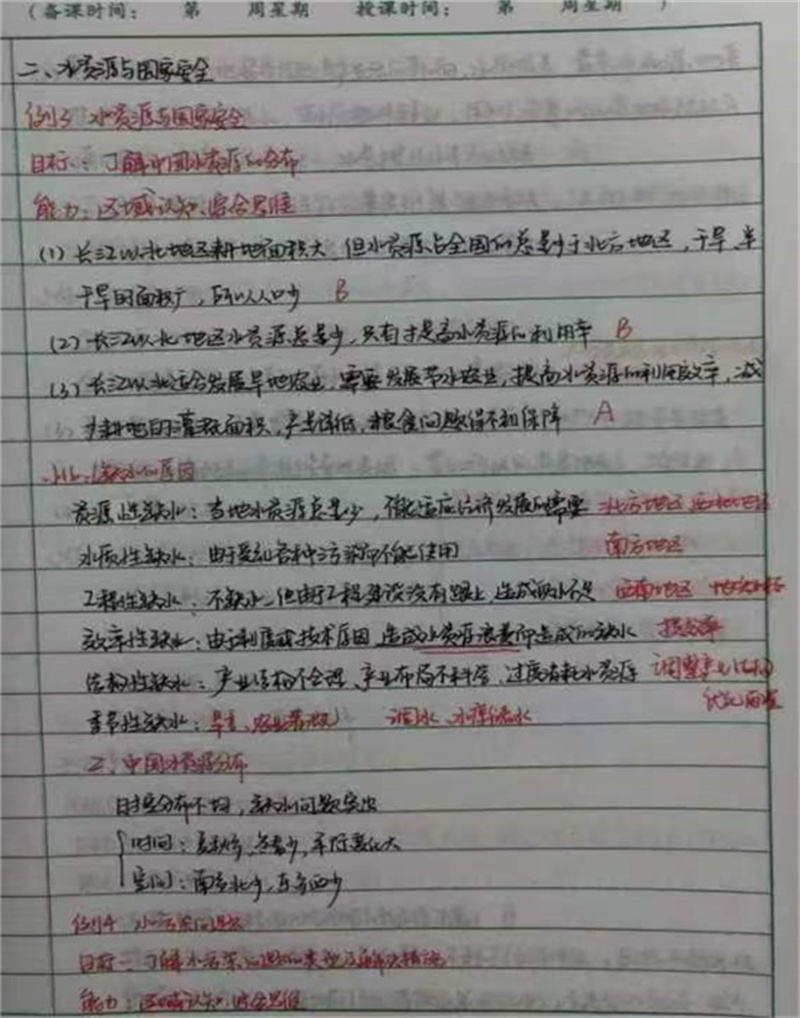 (备课时间: 第 周星期 授课时间: 第 周星期 )
二、水资源与国家安全
例3 水资源与国家安全
目标: 了解中国水资源的分布
能力: 区域认知、综合思维
(1) 长江以北地区耕地面积大,但水资源占全国的总量少于北方地区,干旱、半
干旱的面积广,所以人口少 B
(2) 长江以北地区水资源总量少,只有才提高水资源的利用率 B
(3) 长江以北适合发展旱地农业,需要发展节水农业,提高水资源的利用效率,减
少耕地的灌溉面积,产量降低,粮食问题得不到保障 A
缺水的原因
资源性缺水: 当地水资源总量少,不能适应经济发展的需要 北方地区 西北地区
水质性缺水: 由于受到各种污染而不能使用 南方地区
工程性缺水: 不缺水,但由于工程建设没有跟上,造成供水不足 西南地区
效率性缺水: 由于制度或技术原因,造成水资源浪费而造成的缺水 提效率
结构性缺水: 产业结构不合理、产业布局不科学、过度消耗水资源 调整产业结构
优化布局
季节性缺水: 旱季、农业灌溉 调水、水库蓄水
三、中国水资源分布
时空分布不均,缺水问题突出
时间: 夏秋多,冬春少,年际变化大
空间: 南多北少,东多西少
例4 水污染问题
目标: 了解水污染问题的类型及解决措施
能力: 区域认知、综合思维